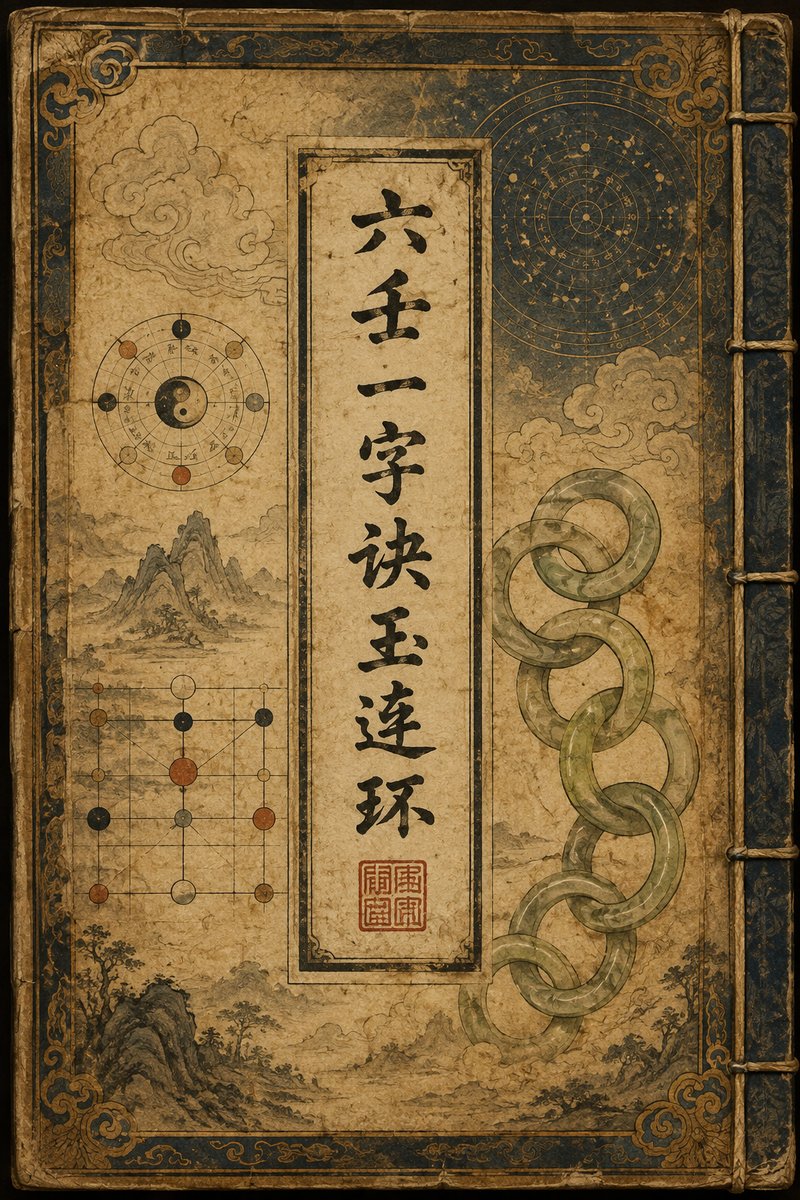 六壬一字诀玉连环